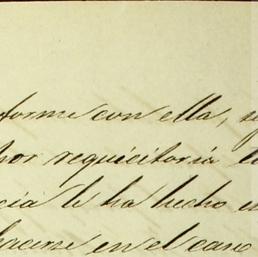 forme con ella, y
por requicitoria
cia le ha hecho
en el caso